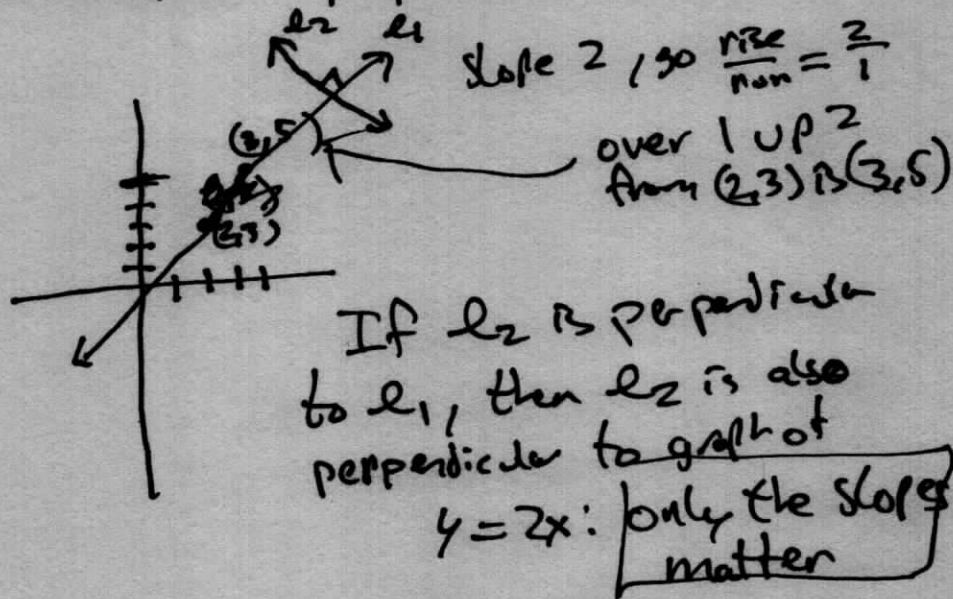 l2 l1
slope 2, so rise/run = 2/1
(3,5)
over 1 up 2
from (2,3) is (3,5)
(2,3)
If l2 is perpendicular
to l1, then l2 is also
perpendicular to graph of
y = 2x: only the slopes
matter